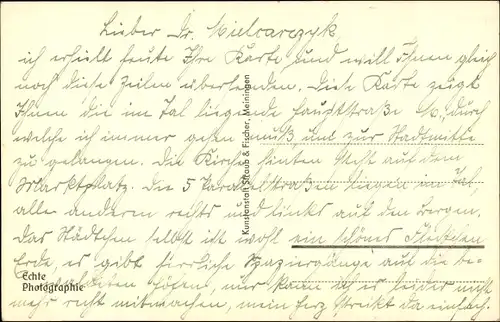 Lieber Dr. Mielcarczyk,
ich erhielt heute Ihre Karte und will Ihnen gleich
noch diese Zeilen übersenden. Diese Karte zeigt
Ihnen die im Tal liegende Hauptstraße durch
welche ich immer gehen muß um zur Stadtmitte
zu gelangen. Die Kirche hinten steht auf dem
Marktplatz. Die 5 Parallelstraßen liegen im Tal
alle anderen rechts und links auf den Bergen.
Das Städtchen selbst ist wohl ein schönes Fleckchen
Erde, es gibt herrliche Spaziergänge auf die be-
Höhen, nur kann ich es leider nicht
mehr recht mitmachen, mein Herz streikt da einfach.
Echte
Photographie
Kunstanstalt Straub & Fischer, Meiningen